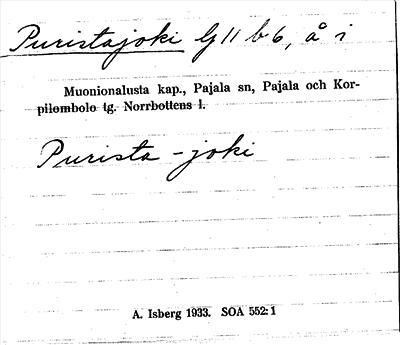 Puristajoki G 11 b 6, å i
Muonionalusta kap., Pajala sn, Pajala och Kor-
pilombolo tg. Norrbottens l.
Purista-joki
A. Isberg 1933. SOA 552:1